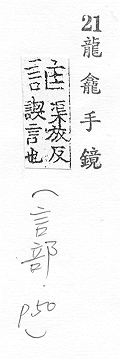 21 龍龕手鏡
渠放反
言也
(言部. p.50)